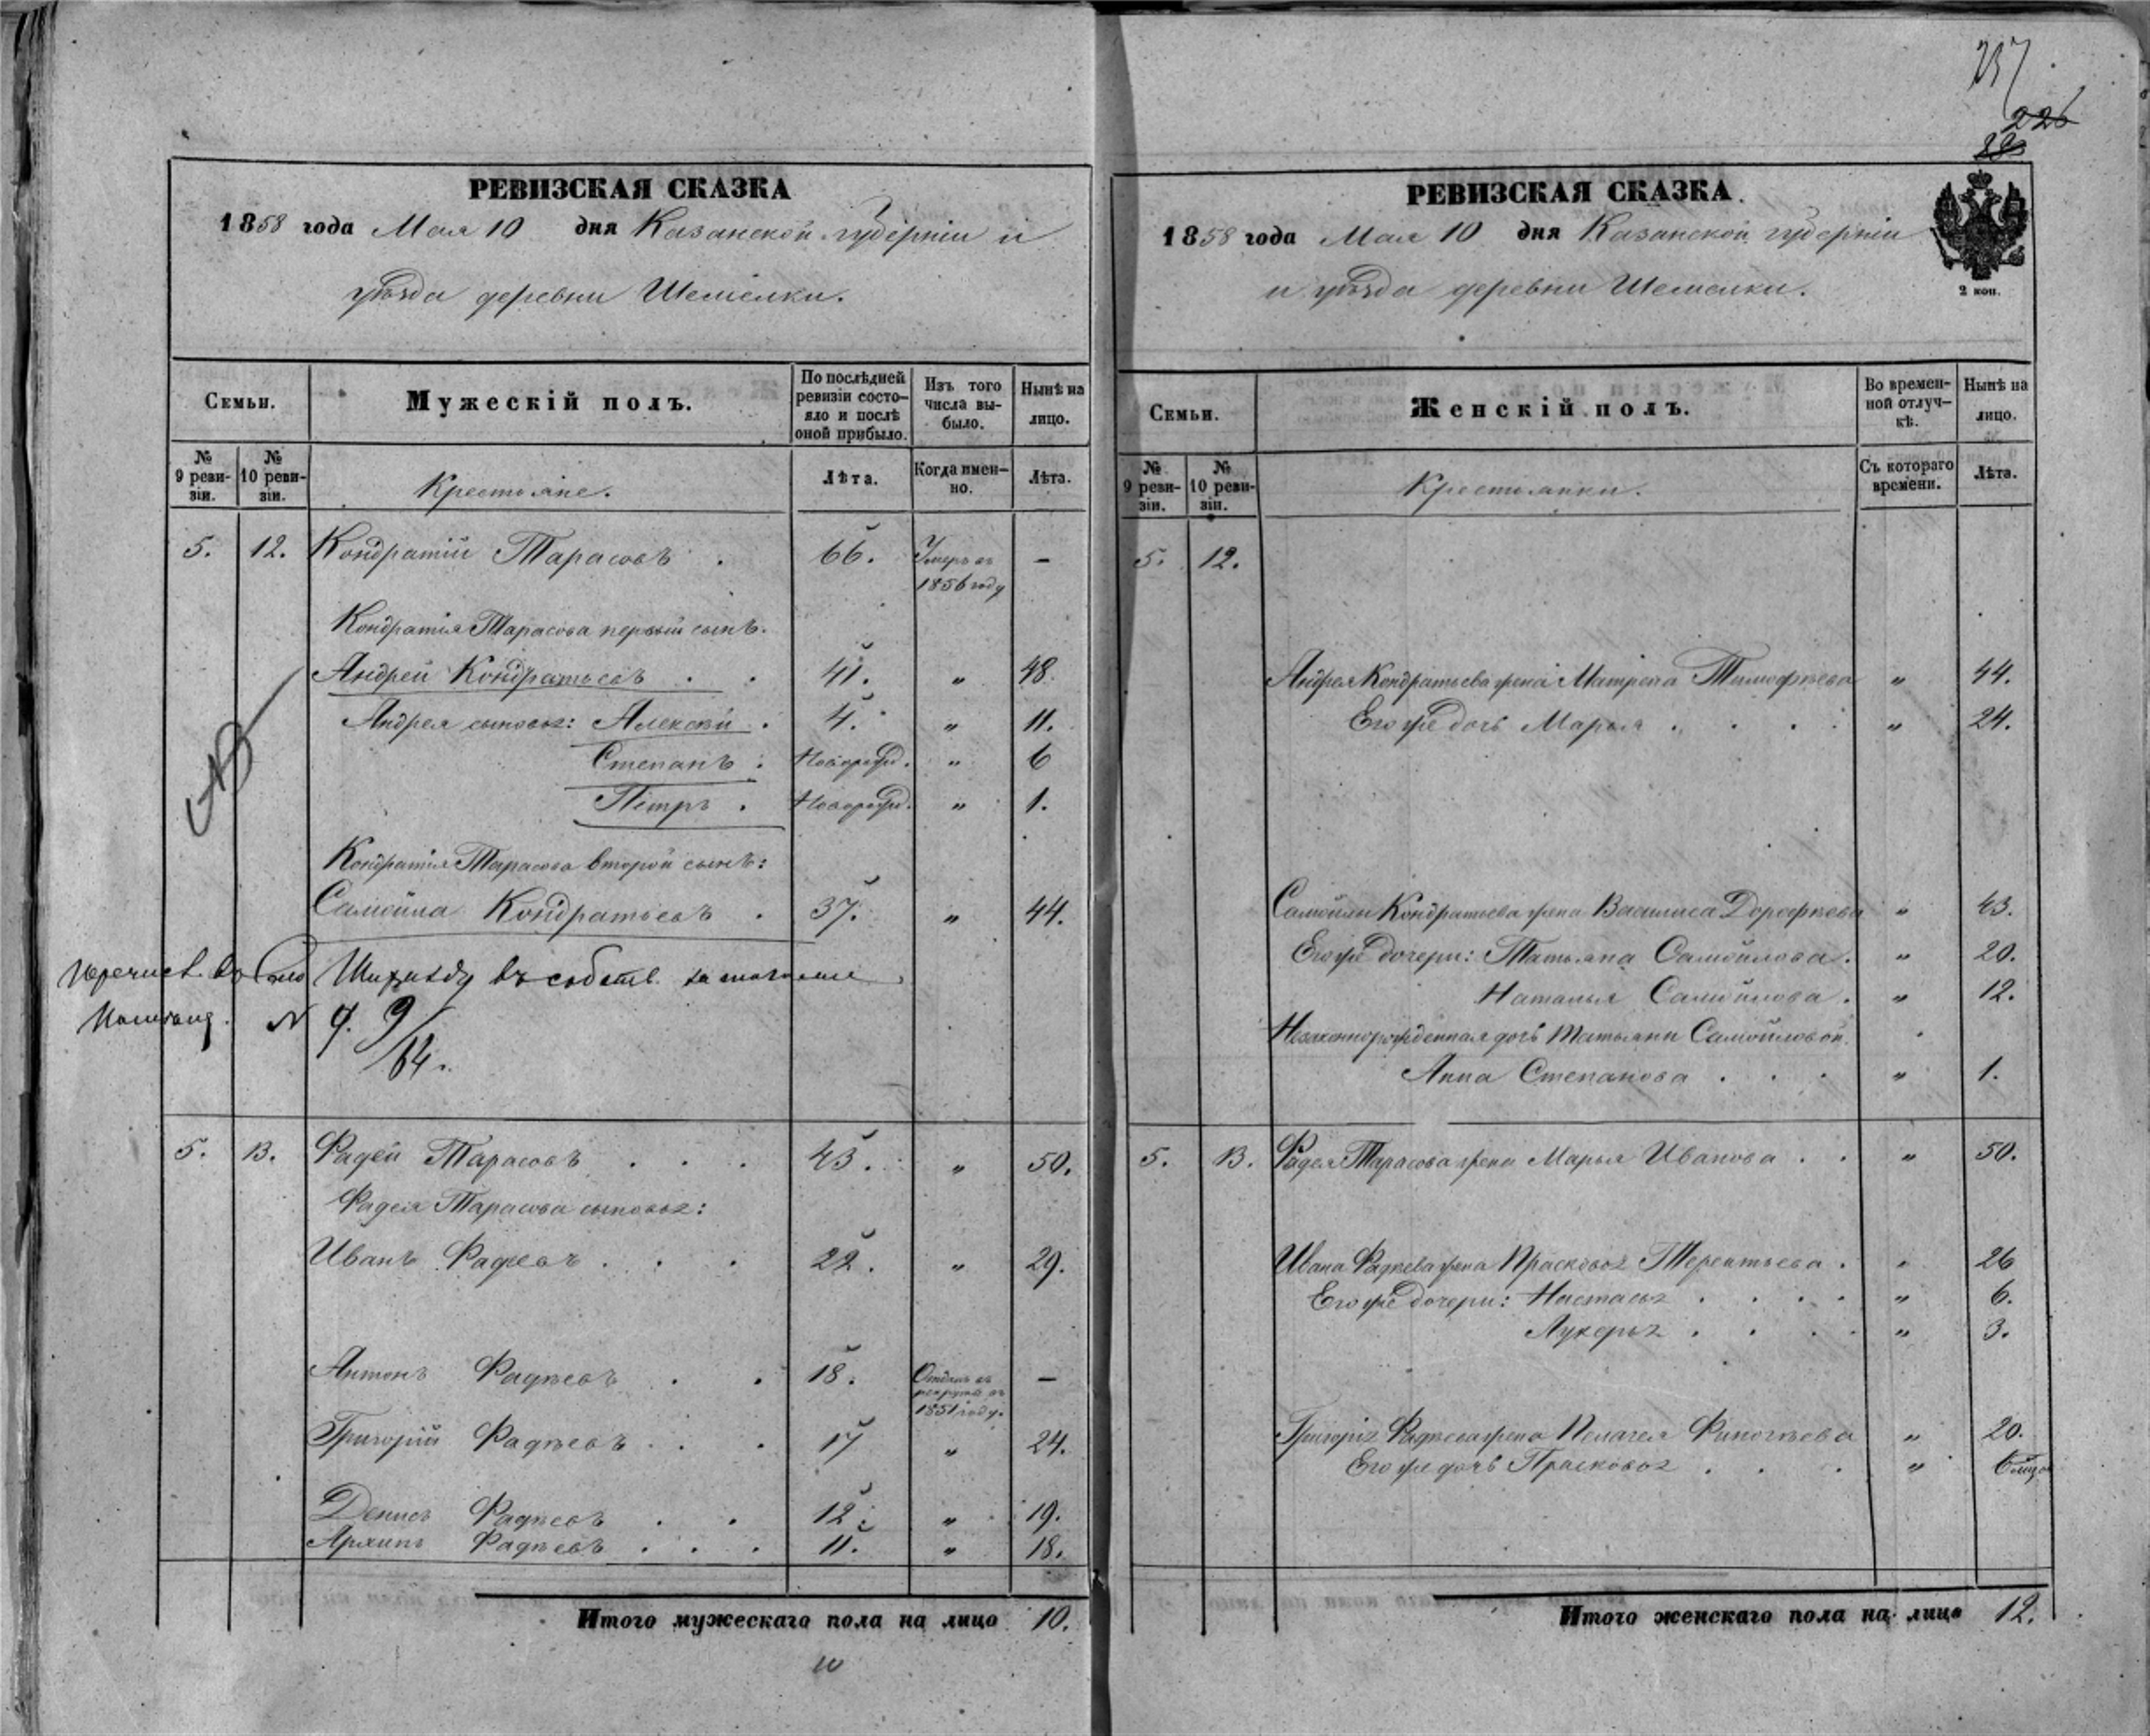 226
РЕВИЗСКАЯ СКАЗКА
1858 года Мая 10 дня Казанской губерніи и
уѣзда деревни Шемелки.
Семьи.
Мужескій полъ.
По послѣдней ревизіи состояло и послѣ оной прибыло.
Изъ того числа выбыло.
Нынѣ на лицо.
№ 9 ревизіи.
№ 10 ревизіи.
Крестьяне.
Лѣта.
Когда имен-но.
Лѣта.
5. 12. Кондратій Тарасовъ . 66. Умеръ въ 1856 году —
Кондратія Тарасова первый сынъ.
Андрей Кондратьевъ . . 41. " 48.
Андрея сыновья: Алексѣй . 4. " 11.
Степанъ . Новорожд. " 6
Петръ . Новорожд. " 1.
Кондратія Тарасова второй сынъ:
Самойла Кондратьевъ . 37. " 44.
въ собств.
№ 9/64.
5. 13. Фадей Тарасовъ . . . 43. " 50.
Фадея Тарасова сыновья:
Иванъ Фадѣевъ . . . 22. " 29.
Антонъ Фадѣевъ . . 18. Отданъ въ рекруты въ 1851 году. —
Григорій Фадѣевъ . . . 17 " 24.
Денисъ Фадѣевъ . . 12. " 19.
Архипъ Фадѣевъ . . . 11. " 18.
Итого мужескаго пола на лицо 10.
РЕВИЗСКАЯ СКАЗКА.
1858 года Мая 10 дня Казанской губерніи
и уѣзда деревни Шемелки.
2 коп.
Семьи.
Женскій полъ.
Во времен-ной отлуч-кѣ.
Нынѣ на лицо.
№ 9 реви-зіи.
№ 10 реви-зіи.
Крестьянки.
Съ котораго времени.
Лѣта.
5. 12.
Андрея Кондратьева жена Матрена Тимофѣева " 44.
Его же дочь Марья . . . . " 24.
Самойлы Кондратьева жена Василиса Дорофѣева " 43.
Его же дочери: Татьяна Самойлова. " 20.
Наталья Самойлова. " 12.
Незаконнорожденная дочь Татьяны Самойловой
Анна Степанова . . . " 1.
5. 13. Фадея Тарасова жена Марья Иванова . . " 50.
Ивана Фадѣева жена Прасковья Терентьева . " 26
Его же дочери: Настасья . . . . " 6.
Лукерья . . . . " 3.
Григорія Фадѣева жена Пелагея Финогѣева " 20.
Его же дочь Прасковья . . . "
Итого женскаго пола на лицо 12.